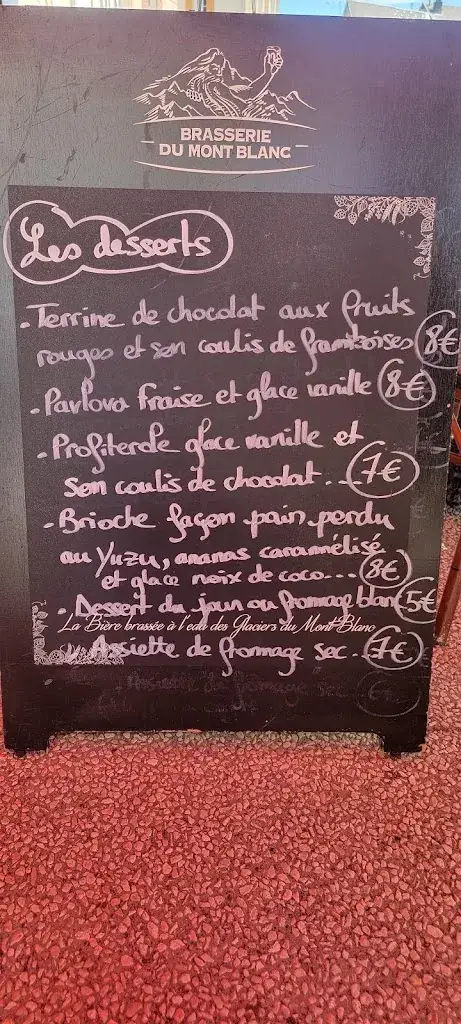 BRASSERIE
DU MONT BLANC
Les desserts
- Terrine de chocolat aux fruits
rouges et son coulis de framboises 8€
- Pavlova fraise et glace vanille 8€
- Profiterole glace vanille et
son coulis de chocolat... 7€
- Brioche façon pain perdu
au Yuzu, ananas caramélisé
et glace noix de coco... 8€
- Dessert du jour ou fromage blanc 5€
La Bière brassée à l'eau des Glaciers du Mont-Blanc
Assiette de fromage sec.. 7€
Assiette de fromage sec..